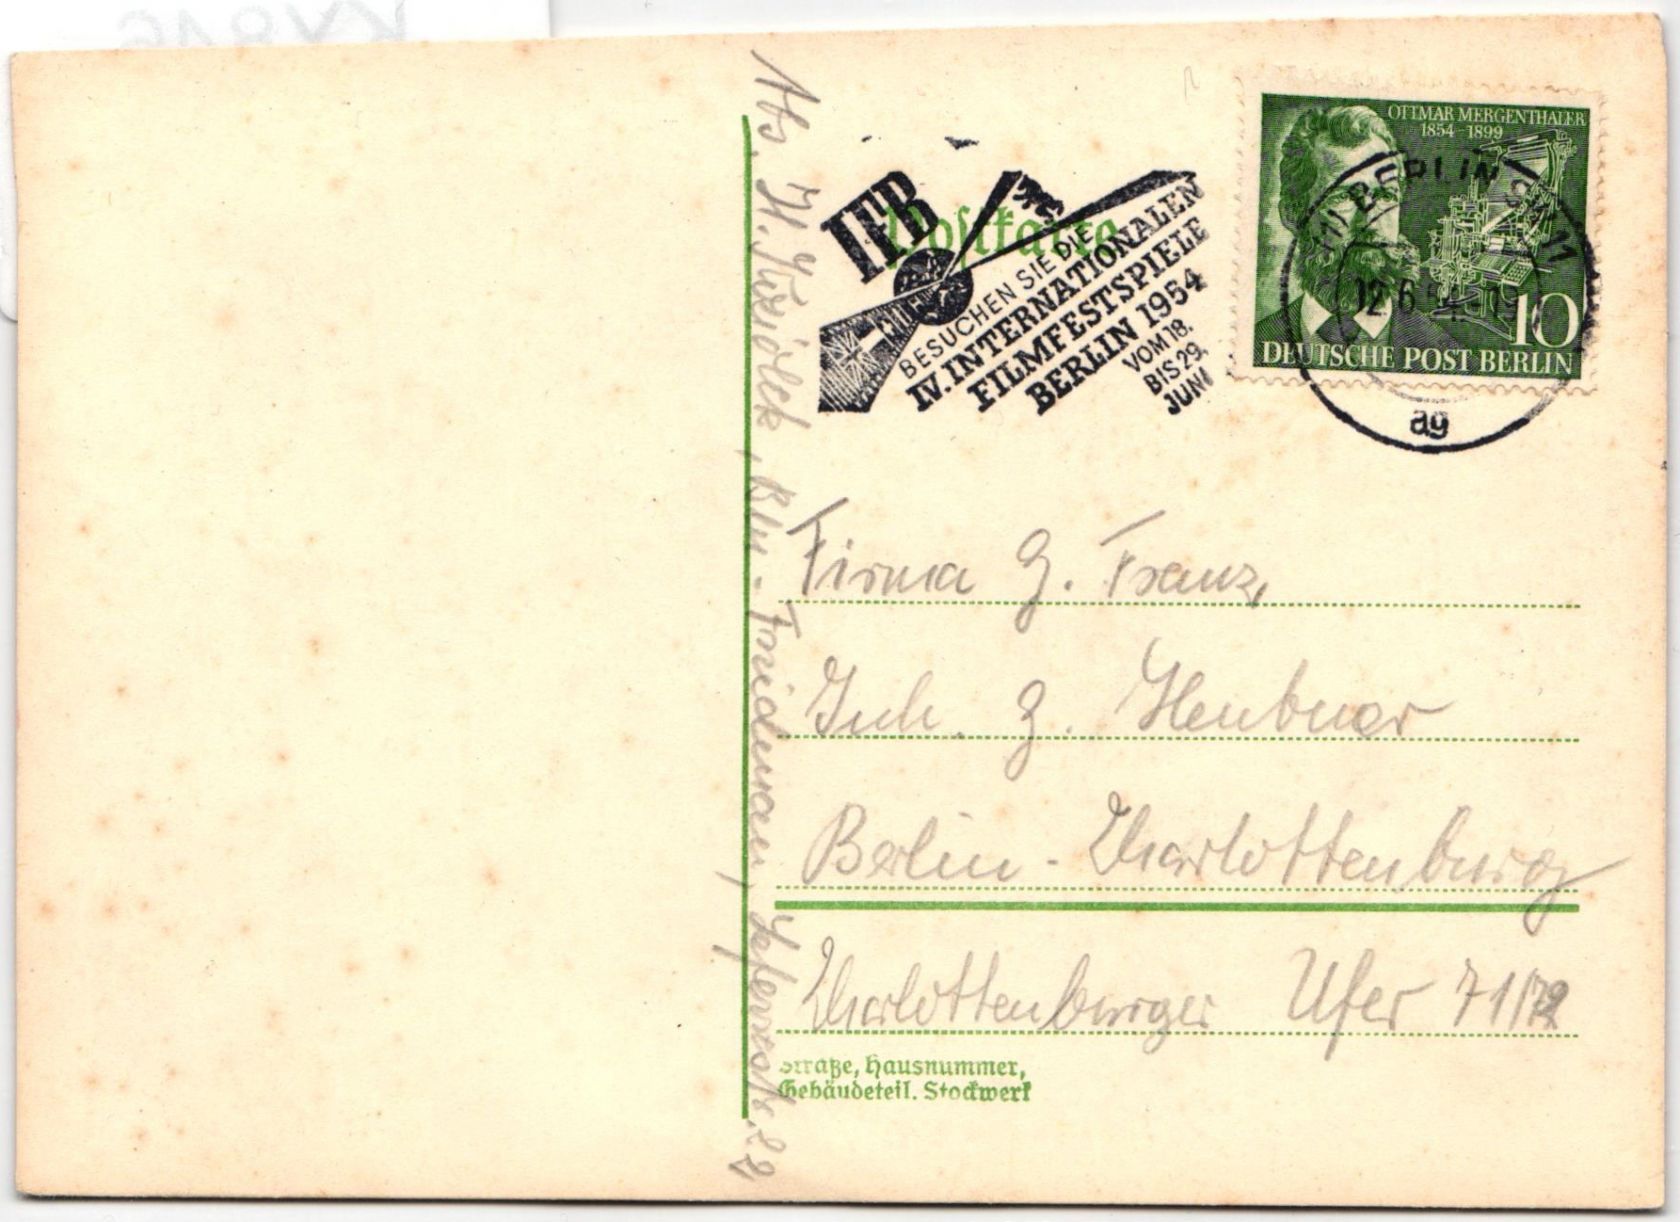 IFB
BESUCHEN SIE DIE
IV. INTERNATIONALEN
FILMFESTSPIELE
BERLIN 1954
VOM 18.
BIS 29.
JUNI
Postkarte
OTTMAR MERGENTHALER
1854-1899
BERLIN SW 11
12.6.54
ag
10
DEUTSCHE POST BERLIN
Abs. H. Bln.-Friedenau, 22
Firma G. Franz,
Inh. G. Heubner
Berlin-Charlottenburg
Charlottenburger Ufer 71/72
Straße, Hausnummer,
Gebäudeteil. Stockwerk